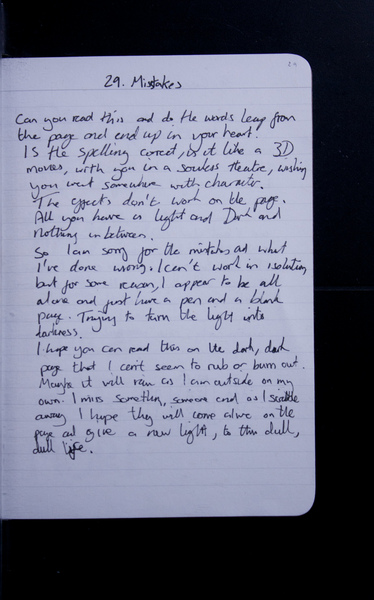 29
29. Mistakes
Can you read this and do the words leap from
the page and end up in your heart.
Is the spelling correct, is it like a 3D
movies, with you in a souless theatre, wishing
you went somewhere with character.
The effects don't work on the page.
All you have is light and Dark and
nothing inbetween.
So I am sorry for the mistakes and what
I've done wrong. I can't work in isolation
but for some reason, I appear to be all
alone and just have a pen and a blank
page. Trying to turn the light into
darkness.
I hope you can read this on the dark, dark
page that I can't seem to rub or burn out.
Maybe it will rain as I am outside on my
own. I miss something, someone and as I scribble
away I hope they will come alive on the
page and give a new light, to this dull,
dull life.